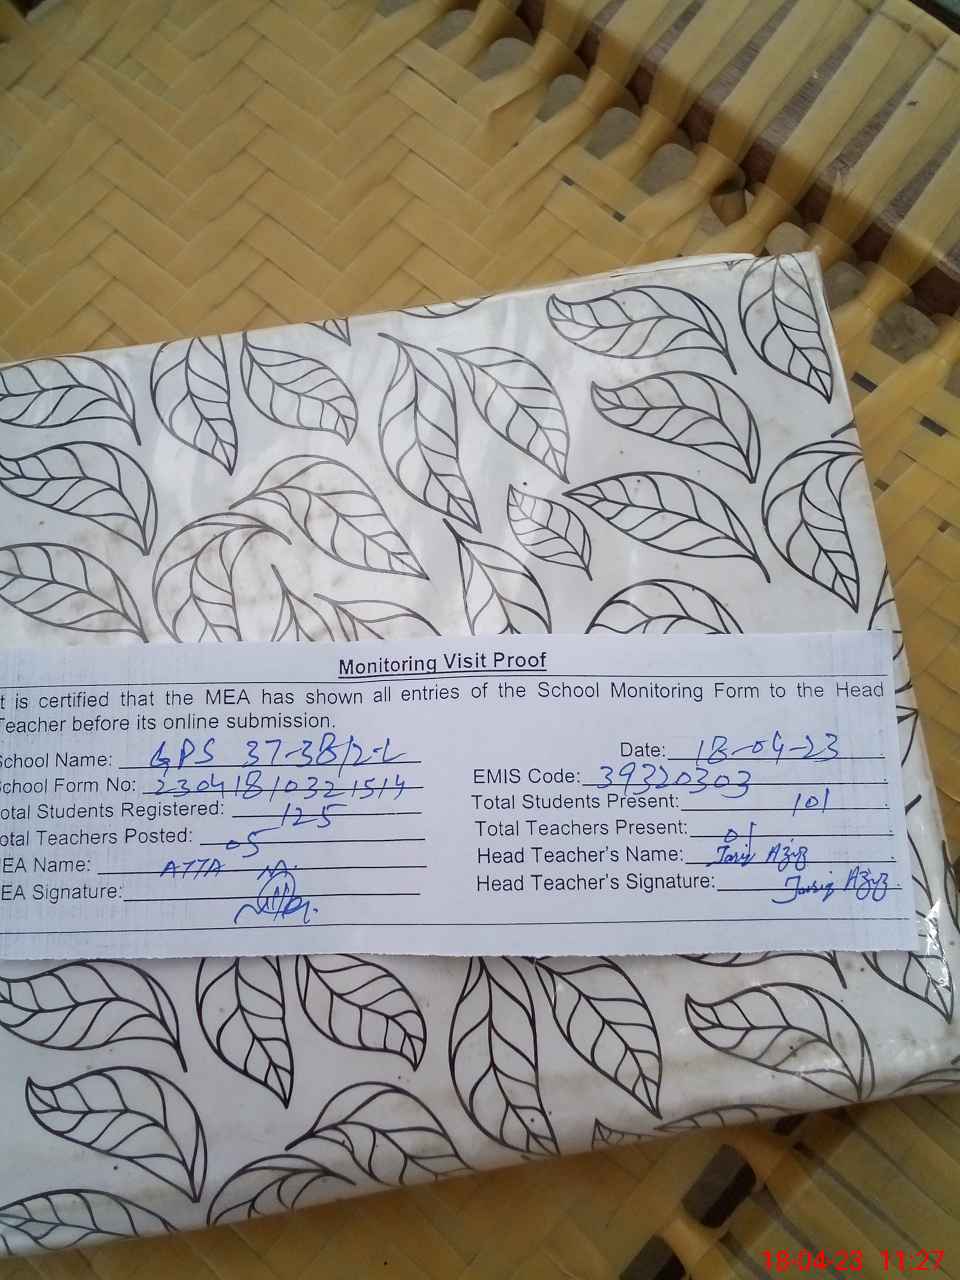 Monitoring Visit Proof
t is certified that the MEA has shown all entries of the School Monitoring Form to the Head
Teacher before its online submission.
School Name: GPS 37-3B/2-L Date: 18-04-23
School Form No: 23041810321514 EMIS Code: 39320303
otal Students Registered: 125 Total Students Present: 101
otal Teachers Posted: 05 Total Teachers Present:
EA Name: ATTA Head Teacher's Name: Tariq Aziz
EA Signature: Head Teacher's Signature: Tariq Aziz
18-04-23 11:27